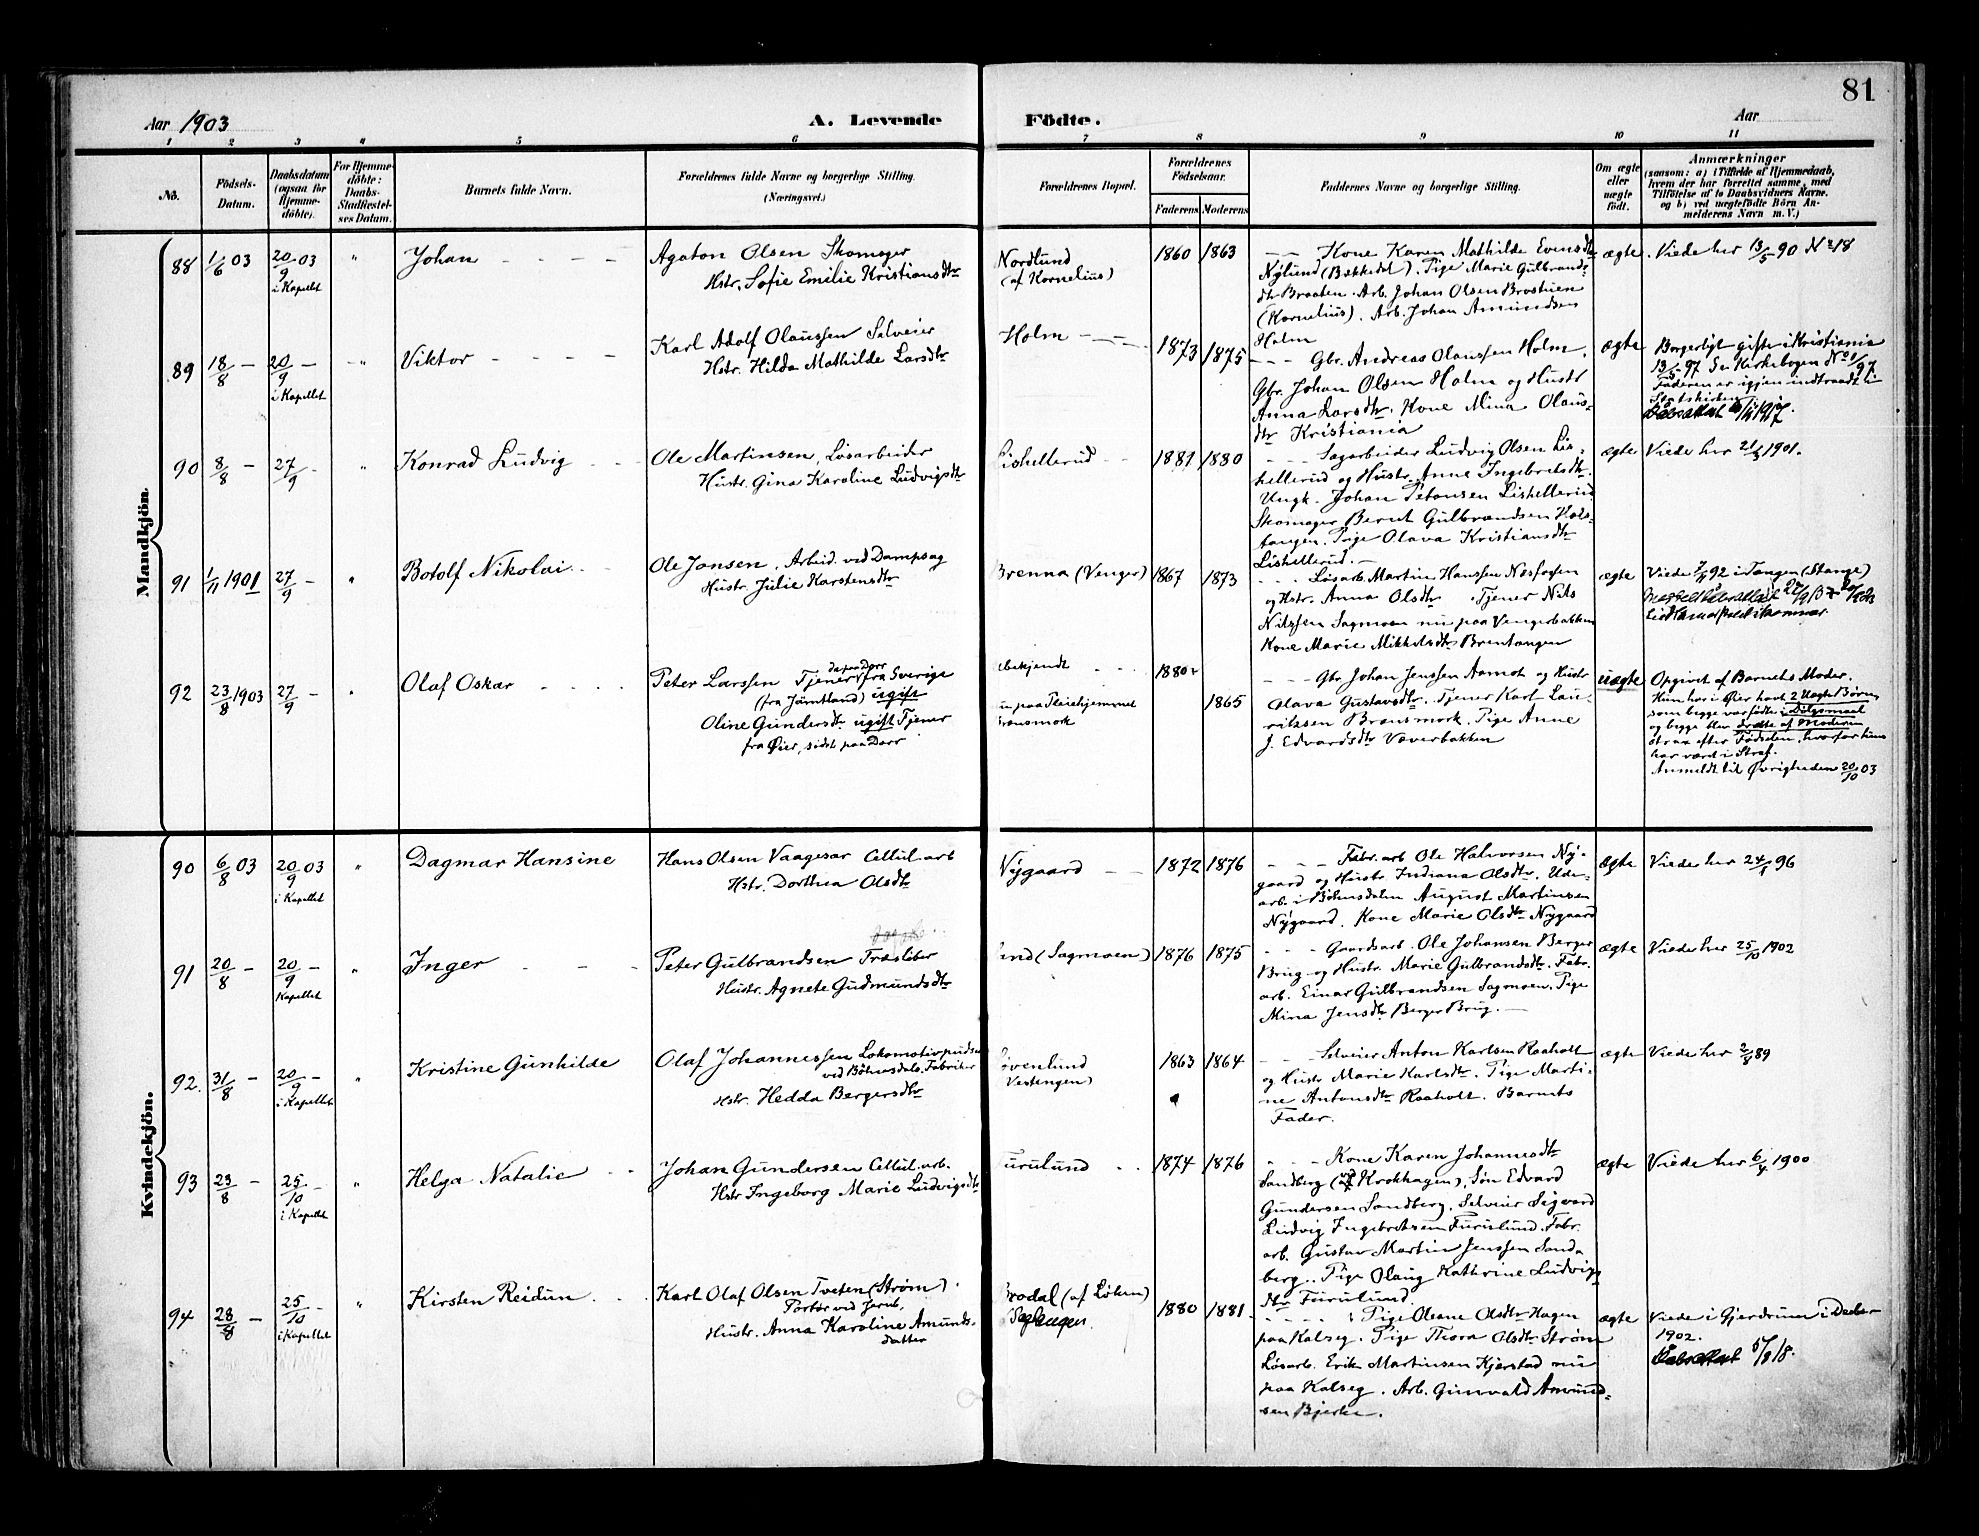 81
Aar 1903
A. Levende Födte.
Aar
1 2 3 4 5 6 7 8 9 10 11
No.
Födsels-Datum.
Daabsdatum (ogsaa for Hjemme-döbte).
For Hjemme-döbte: Daabs-Stadfæstel-ses Datum.
Barnets fulde Navn.
Forældrenes fulde Navne og borgerlige Stilling.
(Næringsvei.)
Forældrenes Bopæl.
Forældrenes Födselsaar.
Faderens Moderens
Faddernes Navne og borgerlige Stilling.
Om ægte eller uægte födt.
Anmærkninger
(saasom: a) i Tilfælde af Hjemmedaab,
hvem der har forrettet samme, med
Tilföielse af to Daabsvidners Navne.
og b) ved uægtefödte Börn An-
melderens Navn m. V.)
Mandkjön.
88 1/6 03 20/9 03 i Kapellet " Johan
Agaton Olsen Skomager
Hstr. Sofie Emilie Kristiansdtr
Nordlund
(af Kornelius)
1860 1863
Kone Karen Mathilde Evensdtr
Nylund (Bækkedal). Pige Marie Gulbrands-
dtr Braaten. Arb. Johan Olsen Brostuen
(Kornelius). Arb. Johan Amundsen
Holm
ægte
Viede her 13/5 90 No 18
89 18/8 20/9 i Kapellet " Viktor
Karl Adolf Olaussen Selveier
Hstr. Hilda Mathilde Larsdtr
Holm
1873 1875
Gbr. Andreas Olaussen Holm.
Gbr. Johan Olsen Holm og Hustr
Anna Larsdtr. Kone Mina Olaus-
dtr Kristiania
ægte
Borgerligt gifte i Kristiania
13/5 97 Se Kirkebogen No 1/97
Faderen er igjen indtraadt i
Statskirken
90 8/8 27/9 " Konrad Ludvig
Ole Martinsen, Løsarbeider
Hustr. Gina Karoline Ludvigsdtr
Lishellerud
1881 1880
Sagarbeider Ludvig Olsen Lis-
hellerud og Hustr. Anne Ingebretsdtr.
Ungk. Johan Petersen Lishellerud
Skomager Bernt Gulbrandsen Hols-
tangen. Pige Olava Kristiansdtr
Lishellerud.
ægte
Viede her 1901.
91 1/11 1901 27/9 " Botolf Nikolai
Ole Jansen, Arbeid. ved Dampsag
Hustr. Julie Karstensdtr
Brenna (Venger)
1867 1873
Løsarb. Martin Hanssen Næsfossen
og Hstr. Anna Olsdtr Tjener Nils
Nilssen Sagmoen nu paa Vengerbakken
Kone Marie Mikkelsdtr Brentangen
ægte
Viede 92 i Tangen (Stange)
92 23/8 1903 27/9 " Olaf Oskar
Peter Larssen Tjener fra Sverige
(fra Jämtland) ugift
Oline Gundersdtr ugift Tjener
fra Øier, sidst paa Dorr
ubekjendt
nu paa Pleiehjemmet
Brænsmork
1880
1865
Gbr Johan Jenssen Aamot og Hustr
Olava Gustavsdtr. Tjener Karl Lau-
ritssen Brænsmork. Pige Anne
J. Edvardsdtr Væverbakken
uægte
Opgivet af Barnets Moder.
Hun har i Øier havt 2 Uægte Børn,
som begge var fødte i Dølgsmaal
og begge blev dræbte af Moderen
strax efter Fødselen, hvorfor hun
har været i Straf.
Anmeldt til Øvrigheden 20/10 03
Kvindekjön.
90 6/8 03 20/9 03 i Kapellet " Dagmar Hansine
Hans Olsen Vaagesar Cellul. arb
Hstr. Dorthea Olsdtr
Nygaard
1872 1876
Fabr. arb Ole Halvorsen Ny-
gaard og Hustr Indiana Olsdtr. Ude-
arb. i Bøhnsdalen August Martinsen
Nygaard. Kone Marie Olsdtr Nygaard
ægte
Viede her 96
91 20/8 20/9 Kapellet " Inger
Peter Gulbrandsen Træsliber
Hustr. Agnete Gudmundsdtr
Lund (Sagmoen)
1876 1875
Gaardsarb. Ole Johansen Berger
Brug og Hustr. Marie Gulbrandsdtr. Fabr.
arb. Einar Gulbrandsen Sagmoen. Pige
Mina Jensdtr Berger Brug.
ægte
Viede her 25/10 1902
92. 31/8 20/9 i Kapellet " Kristine Gunhilde
Olaf Johannessen Lokomotivpudser
ved Bøhnsdals. Fabriker
Hstr. Hedda Bergersdtr
Løvenlund
(Vestengen)
1863 1864
Selveier Anton Karlsen Raaholt
og Hustr Marie Karlsdtr. Pige Marti-
ne Antonsdtr Raaholt. Barnets
Fader.
ægte
Viede her 89
93 23/8 25/10 i Kapellet " Helga Natalie
Johan Gundersen Cellul. arb.
Hstr Ingeborg Marie Ludvigsdtr
Furulund
1874 1876
Kone Karen Johannesdtr
Sandberg (Krokhagen), Søn Edvard
Gundersen Sandberg. Selveier Sigvard
Ludvig Ingebretsen Furulund. Fabr.
arb. Gustav Martin Jenssen Sand-
berg. Pige Olaug Kathrine Ludvigs
dtr Furulund.
ægte
Viede her 6/4 1900
94 28/8 25/10 i Kapellet " Kirsten Reidun
Karl Olaf Olsen Tveten (Strøm)
Portør ved Jernb.
Hustr. Anna Karoline Amunds-
datter
Brodal (af Løken)
1880 1881
Pige Oleane Olsdtr Hagen
paa Kalseg. Pige Thora Olsdtr Strøm
Løsarb. Erik Martinsen Kjerstad nu
paa Kalseg. Arb. Gunvald Amund-
sen Bjerke.
ægte
Viede i Gjerdrum i Decbr
1902.